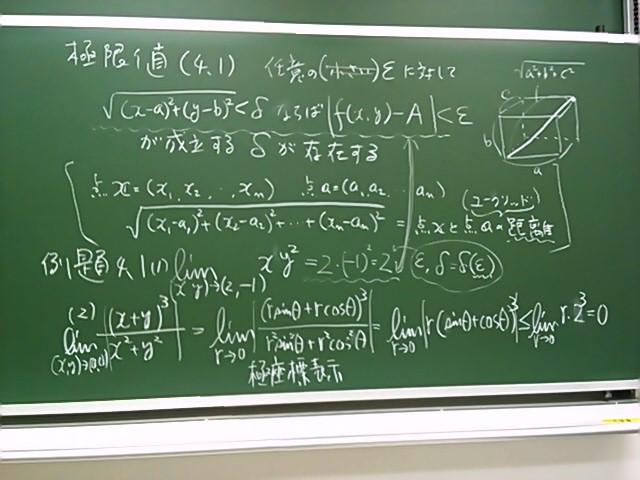 極限値 (4.1) 任意の(小さい) ε に対して
√(x-a)²+(y-b)² < δ ならば |f(x,y)-A| < ε
が成立する δ が存在する
√a²+b²+c²
c
b
a
点 x = (x₁, x₂, ..., xₙ) 点 a = (a₁, a₂, ... aₙ)
√(x₁-a₁)²+(x₂-a₂)²+...+(xₙ-aₙ)² = 点 x と点 a の 距離
(ユークリッド)
例題4.1(1) lim (x,y)→(2,-1) xy² = 2·(-1)² = 2 ε, δ=δ(ε)
(2) lim (x,y)→(0,0) |(x+y)³/x²+y²| = lim r→0 |(r sinθ + r cosθ)³/r²sin²θ + r²cos²θ| = lim r→0 |r(sinθ+cosθ)³| ≤ lim r→0 r·2³ = 0
極座標表示